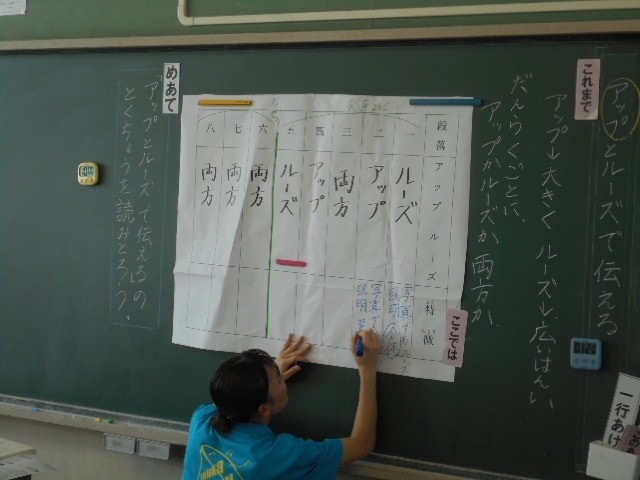 アップとルーズで伝える
これまで
アップ→大きく ルーズ→広いはんい
だんらくごとに、
アップかルーズか、両方か、
ここでは
段落 アップ ルーズ 特徴
一 ルーズ
二 アップ
三 両方
四 アップ
五 ルーズ
六 両方
七 両方
八 両方
めあて
アップとルーズで伝えるの
とくちょうを読みとろう。
一行あけ